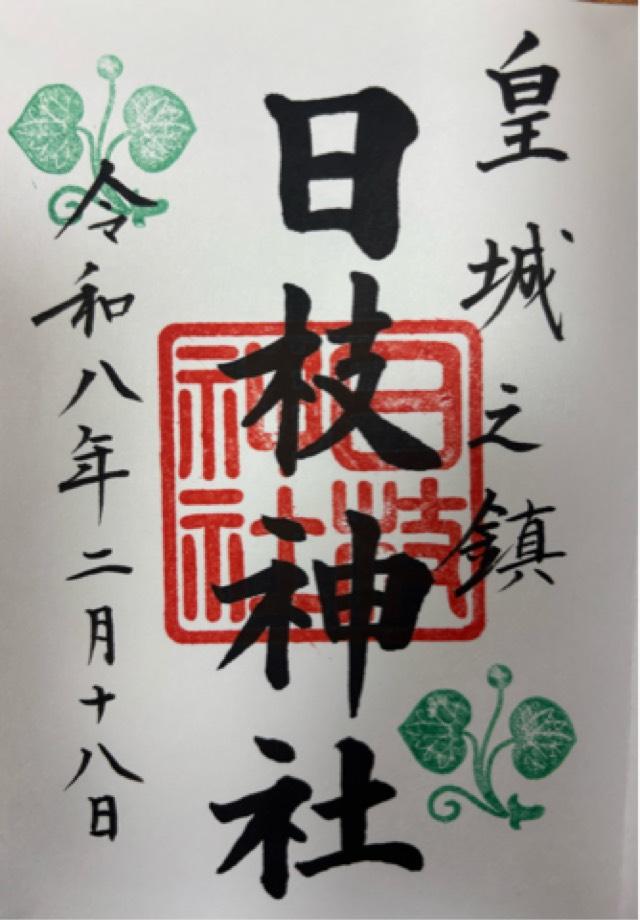 皇城之鎮
日枝神社
日枝神社
令和八年二月十八日